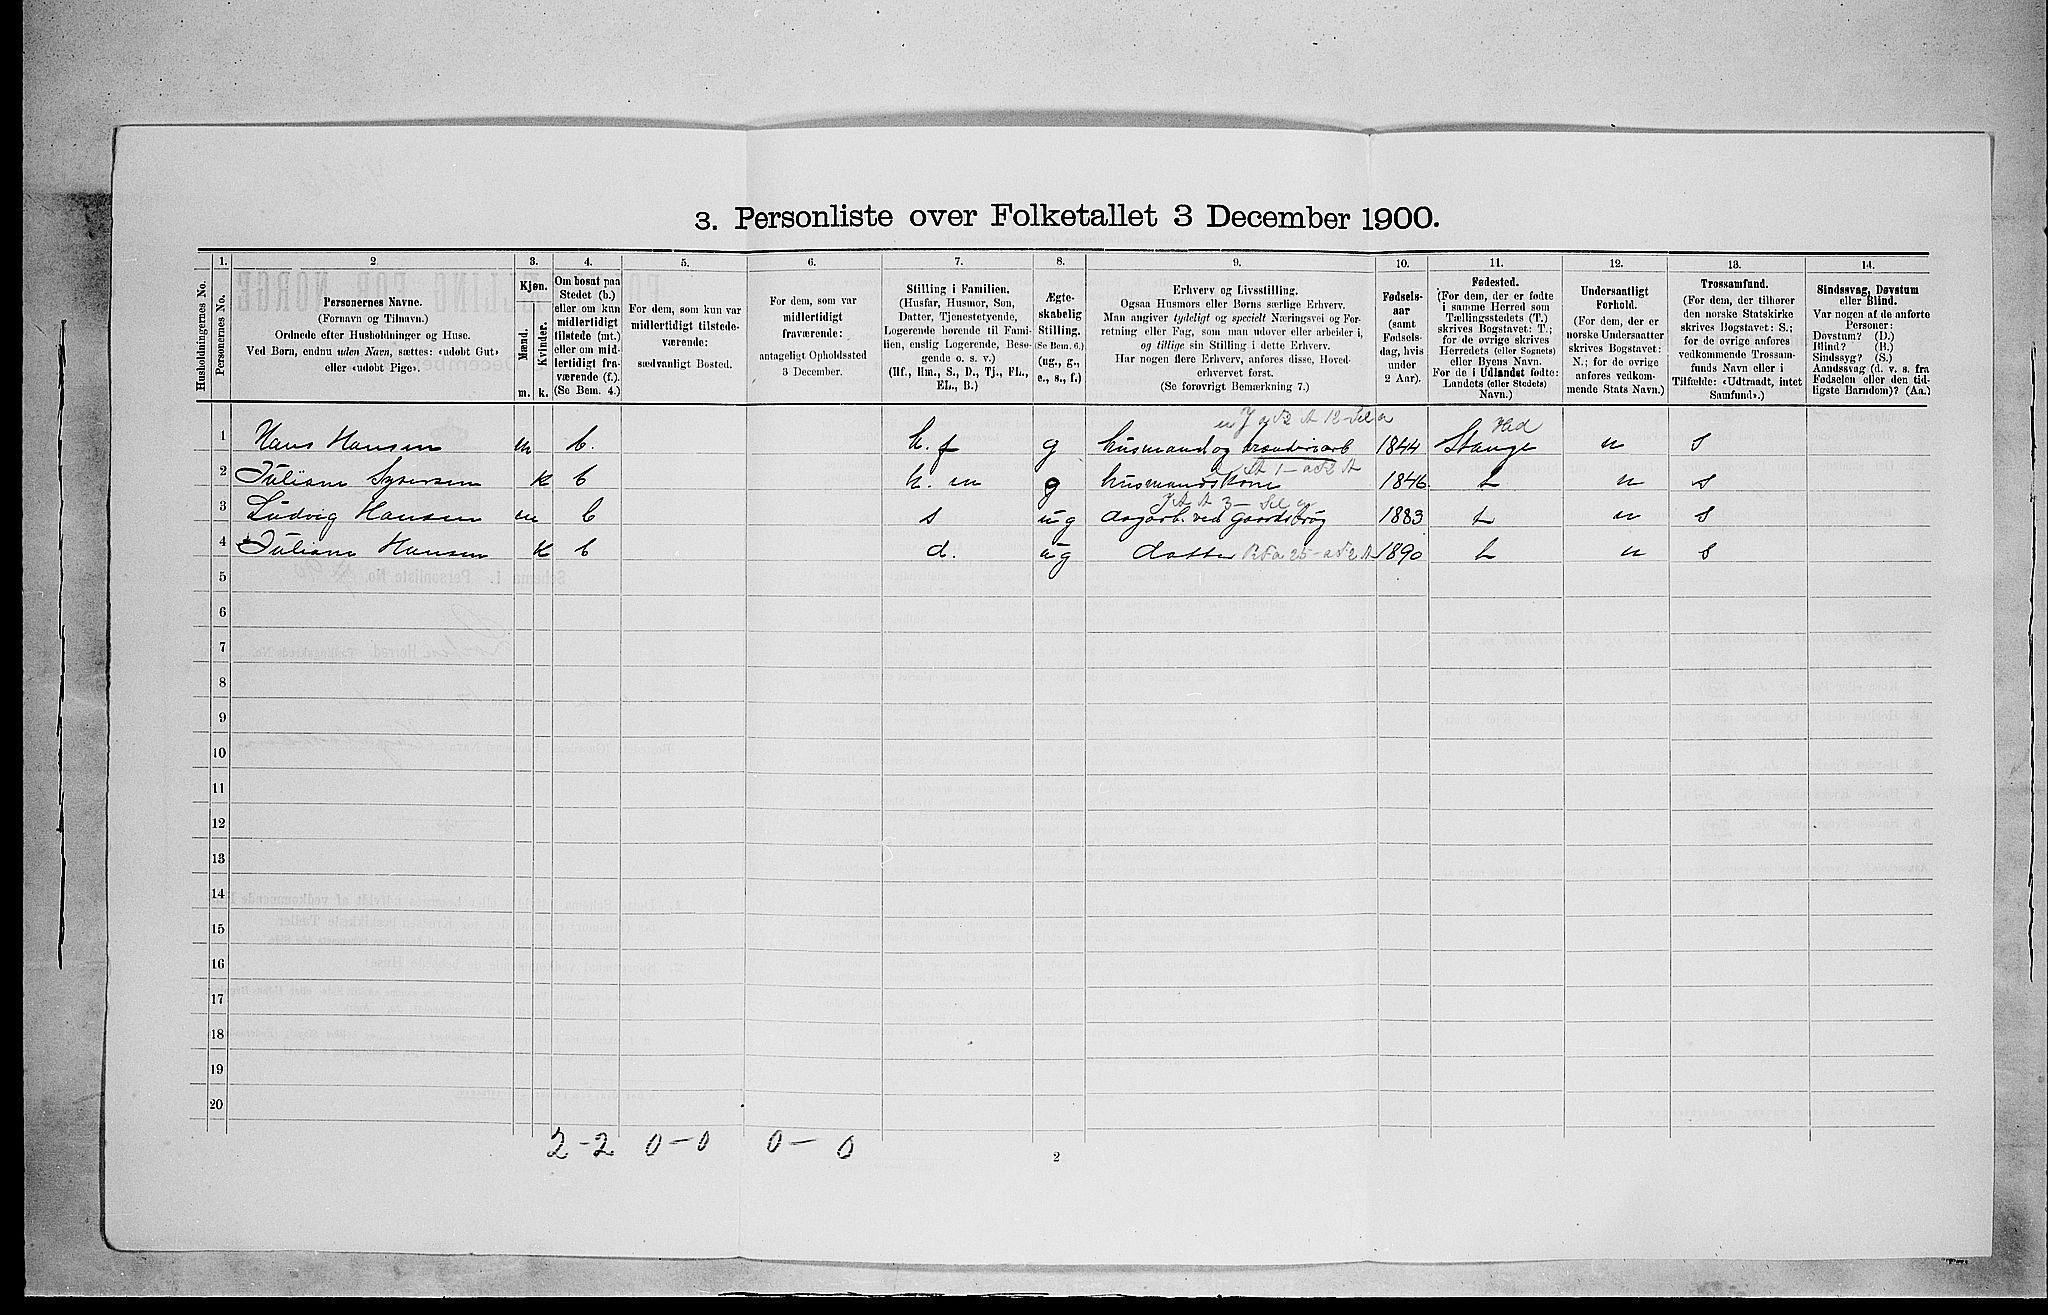 3. Personliste over Folketallet 3 December 1900.
1. 2. 3. 4. 5. 6. 7. 8. 9. 10. 11. 12. 13. 14.
Husholdningernes No.
Personernes No.
Personernes Navne.
(Fornavn og Tilnavn.)
Ordnede efter Husholdninger og Huse.
Ved Børn, endnu uden Navn, sættes: «udøbt Gut»
eller «udøbt Pige».
Kjøn.
Mænd.
Kvinder.
m. k.
Om bosat paa
Stedet (b.)
eller om kun
midlertidigt
tilstede (mt.)
eller om mid-
lertidigt fra-
værende (f.)
(Se Bem. 4.)
For dem, som kun var
midlertidigt tilstede-
værende:
sædvanligt Bosted.
For dem, som var
midlertidigt
fraværende:
antageligt Opholdssted
3 December.
Stilling i Familien.
(Husfar, Husmor, Søn,
Datter, Tjenestetyende,
Logerende hørende til Fami-
lien, enslig Logerende, Besø-
gende o. s. v.)
(Hf., Hm., S., D., Tj., FL.,
EL., B.)
Ægte-
skabelig
Stilling.
(Se Bem. 6.)
(ug., g.,
e., s., f.)
Erhverv og Livsstilling.
Ogsaa Husmors eller Børns særlige Erhverv.
Man angiver tydeligt og specielt Næringsvei og For-
retning eller Fag, som man udover eller arbeider i,
og tillige sin Stilling i dette Erhverv.
Har nogen flere Erhverv, anføres disse, Hoved-
erhvervet først.
(Se forøvrigt Bemærkning 7.)
Fødsels-
aar
(samt
Fødsels-
dag, hvis
under
2 Aar).
Fødested.
(For dem, der er fødte
i samme Herred som
Tællingsstedets (T.)
skrives Bogstavet: T.;
for de øvrige skrives
Herredets (eller Sognets)
eller Byens Navn.
For de i Udlandet fødte:
Landets (eller Stedets)
Navn.)
Undersaatligt
Forhold.
(For dem, der er
norske Undersaatter
skrives Bogstavet:
N.; for de øvrige
anføres vedkom-
mende Stats Navn.)
Trossamfund.
(For dem, der tilhører
den norske Statskirke
skrives Bogstavet: S.;
for de øvrige anføres
vedkommende Trossam-
funds Navn eller i
Tilfælde: «Udtraadt, intet
Samfund».)
Sindssvag, Døvstum
eller Blind.
Var nogen af de anførte
Personer:
Døvstum? (D.)
Blind? (B.)
Sindssyg? (S.)
Aandssvag (d. v. s. fra
Fødselen eller den tid-
ligste Barndom)? (Aa.)
1 Hans Hansen m b. h. f g husmand og 1844 Stange Hed n s
2 Juliane Syversen k b h. m g husmandskone 1846 t n s
3 Ludvig Hansen m b s ug dagarb. ved Gaardsbrug 1883 t n s
4 Juliane Hansen k b d. ug datter 1890 t n s
5
6
7
8
9
10
11
12
13
14
15
16
17
18
19
20
2-2 0-0 0-0
2